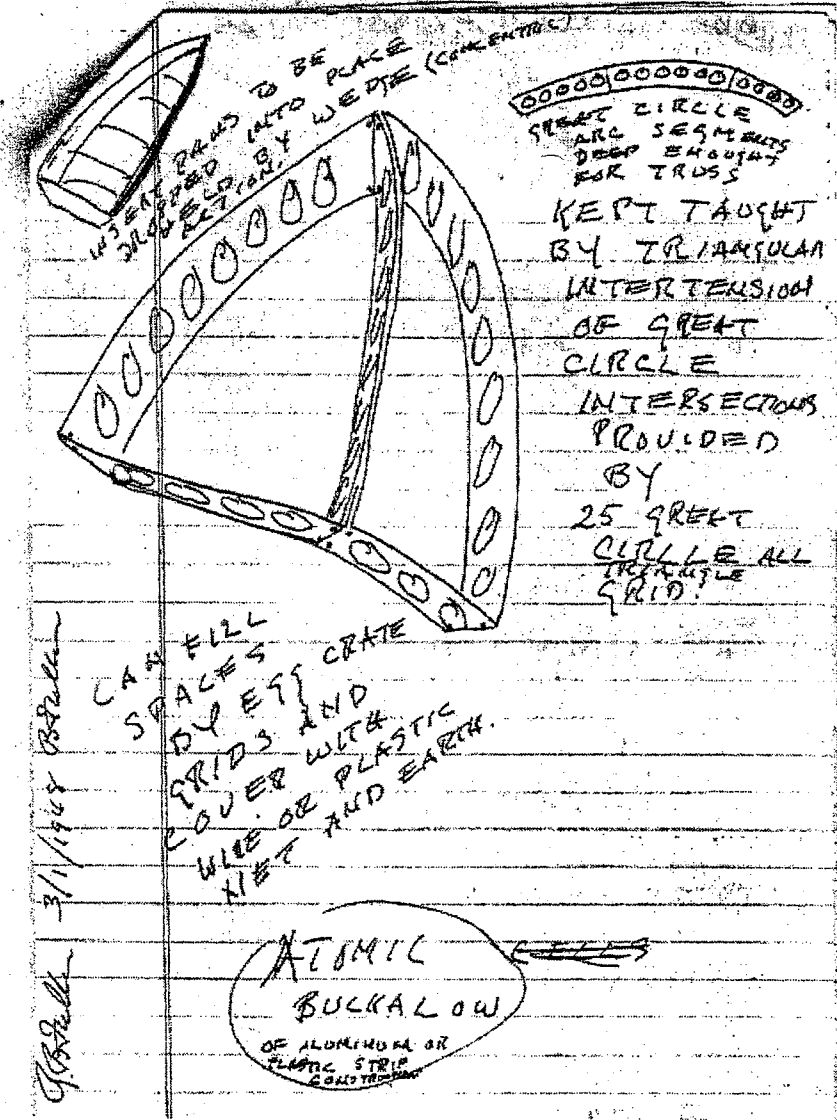 INSERT PANS TO BE
DROPPED INTO PLACE
HELD BY WEDGE (CONCENTRIC)
ACTION.
GREAT CIRCLE
ARC SEGMENTS
DEEP ENOUGH
FOR TRUSS
KEPT TAUGHT
BY TRIANGULAR
INTERTENSION
OF GREAT
CIRCLE
INTERSECTIONS
PROVIDED
BY
25 GREAT
CIRCLE ALL
TRIANGLE
GRID.
CAN FILL
SPACES
BY EGG CRATE
GRIDS AND
COVER WITH
WIRE OR PLASTIC
NET AND EARTH.
3/1/1948 B Fuller
R B Fuller
ATOMIC
BUCKALOW
OF ALUMINUM OR
PLASTIC STRIP
CONSTRUCTION